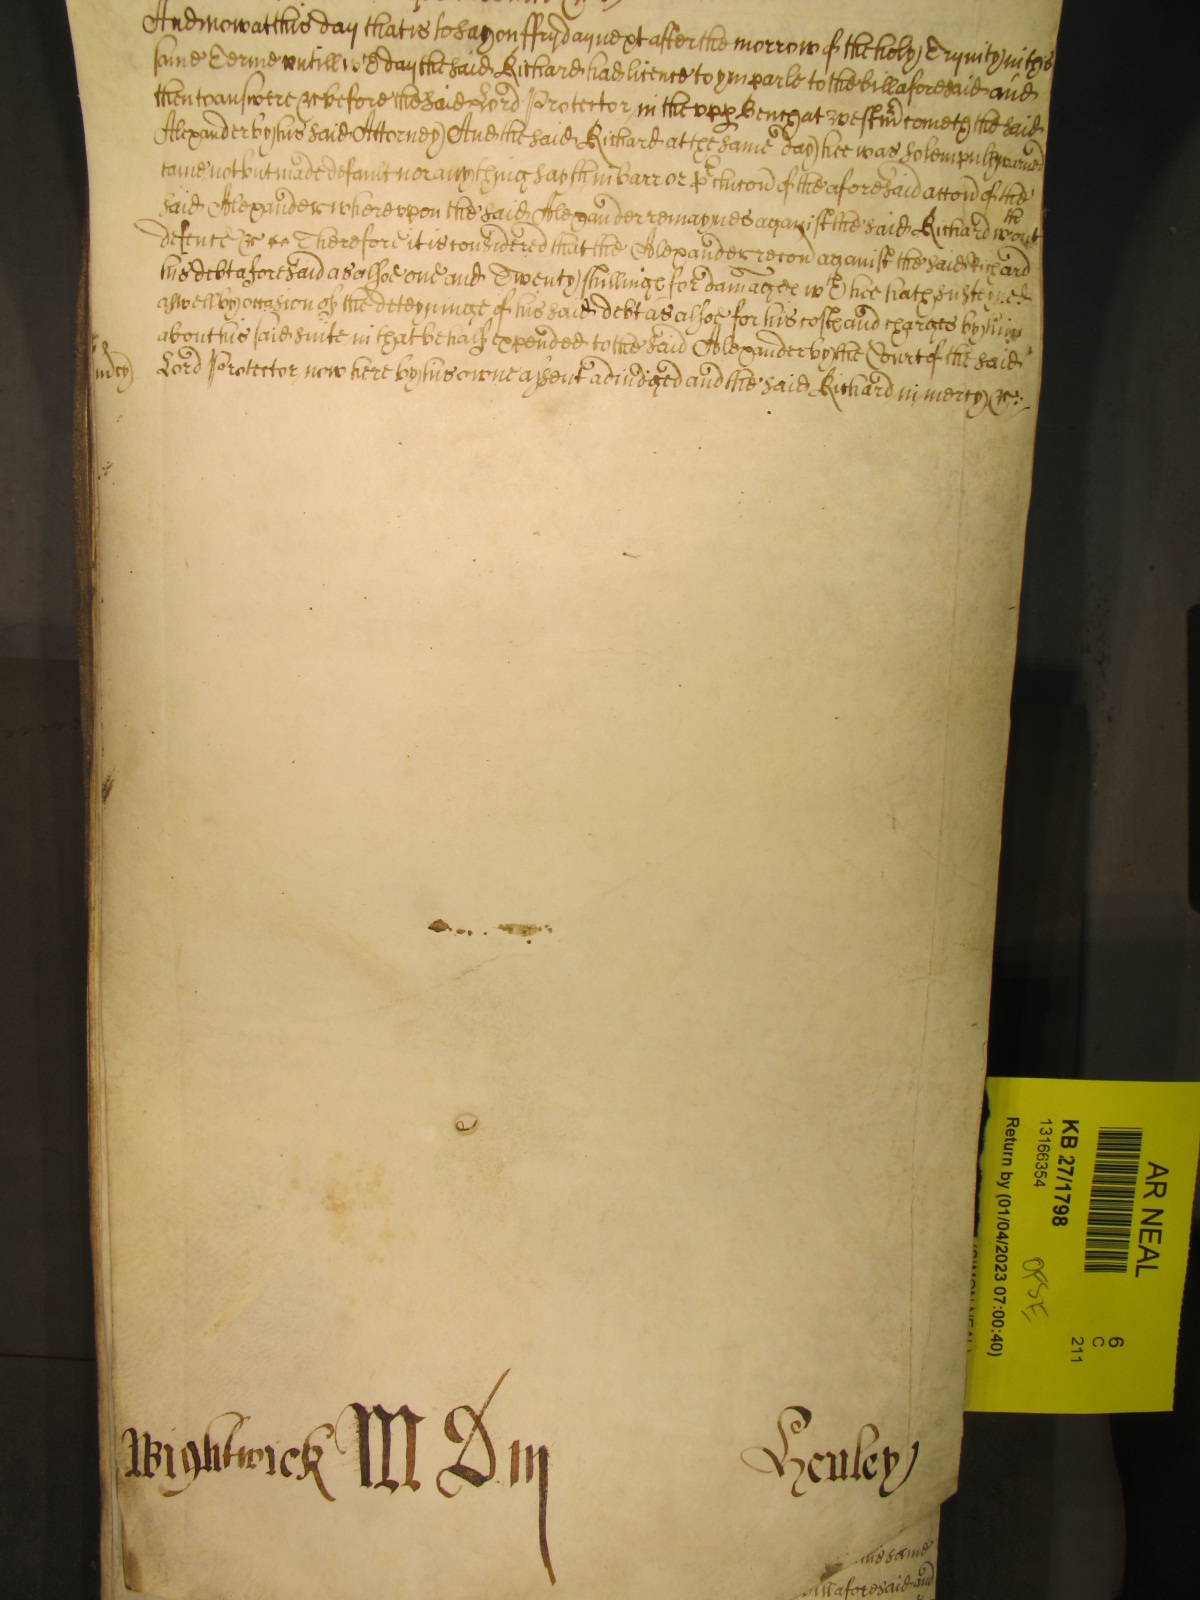 And now at this day that is to say on ffryday next after the morrow of the holy Trynity in this
same Terme untill wch day the said Richard had licence to ymparle to the bill aforesaid and
then to answere &c before the said Lord Protector in the upp Bench at Westm cometh the said
Alexander by his said Attorney And the said Richard at the same day hee was solempnly
came not but made default nor any thing sayth in barr or of the aforesaid accon of the
said Alexander whereupon the said Alexander remaynes against the said Richard wthout
defence &c Therefore it is considered that the Alexander recou against the said Richard
his debt aforesaid as alsoe one and Twenty shillings for damages wch hee hath susteyned
aswell by occasion of the deteyninge of his said debt as alsoe for his costs and charges by him
about his said suite in that behalf expended to the said Alexander by the Court of the said
Lord Protector now here by his owne assent adiudged and the said Richard in mercy &c
Wightwick M D iij
Henley
same
aforesaid and
AR NEAL
6
C
211
KB 27/1798
13166354
Return by (01/04/2023 07:00:40)